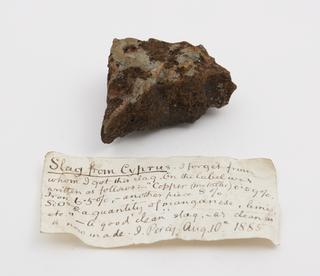 Slag from Cyprus. I forget from
whom I got this slag. On the label was
written as follows:- "Copper (metallic) 0.67%.
Iron 6.5% - another piece 8%
a quantity of manganese, lime,
etc." - a good clean slag, - as clean as
now made. J. Percy, Aug. 10th 1885